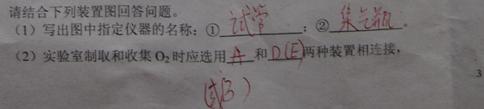 请结合下列装置图回答问题。
(1)写出图中指定仪器的名称:① 试管 ;② 集气瓶 。
(2)实验室制取和收集O₂时应选用 A 和 D(E) 两种装置相连接,
(或B)
3